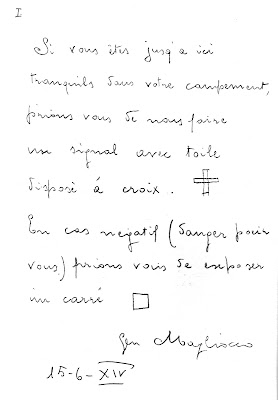 I
Si vous êtes jusq'a ici
tranquils dans votre campement,
prions vous de nous faire
un signal avec toile
disposè à croix.
En cas négatif (danger pour
vous) prions vous de exposer
un carré
Gen Magliocco
15-6-XIV